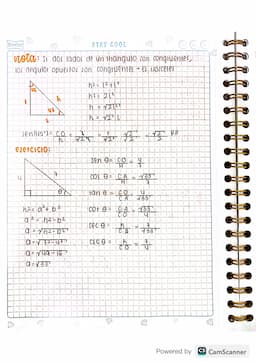 STAY COOL
Nota: Si dos lados de un triangulo son congruentes,
los angulos opuestos son congruentes - Δ isosceles
h² = l² + l²
h² = 2l²
h = √2l²
h = √2 l
45
h
sen(45°) = CO/h = = 1/√2 · √2/√2 = √2/2
EJERCICIO:
sen θ = CO/h = 4/7
cos θ = CA/h = √33/7
tan θ = CO/CA = 4/√33
cot θ = CA/CO = √33/4
sec θ = h/CA = 7/√33
csc θ = h/CO = 7/4
4
7
θ
h² = a² + b²
a² = h² - b²
a = √h² - b²
a = √7² - 4²
a = √49 - 16
a = √33
Powered by CS CamScanner